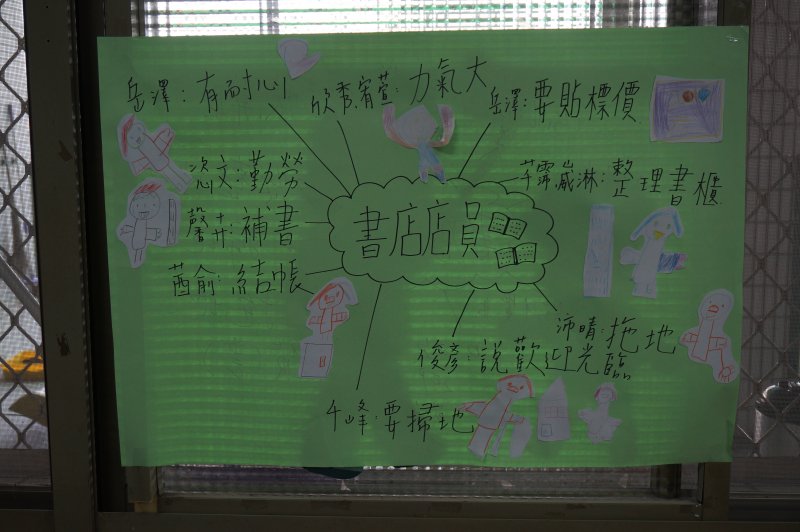 岳澤：有耐心
欣秀.宥萱：力氣大
岳澤：要貼標價
文：勤勞
整理書櫃
馨卉：補書
書店店員
茜俞：結帳
沛晴：拖地
俊彥：說歡迎光臨
千峰：要掃地